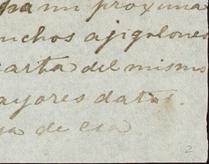 mi proxima
uchos ajigolones
carta del mismo
ayores datos.
sa de esa
2